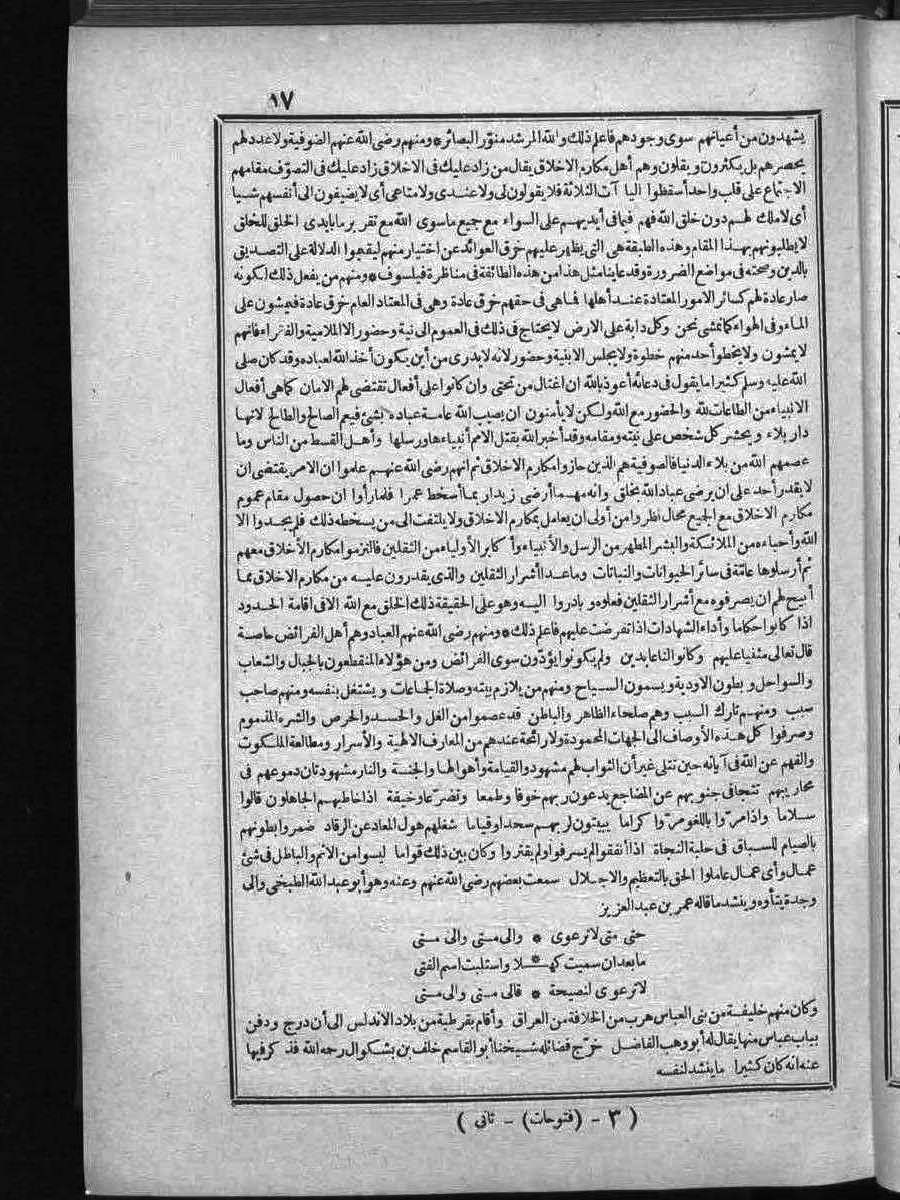 ١٧
يشهدون من أعيانهم سوى وجودهم فاعلم ذلك والله المرشد منوّر البصائر * ومنهم رضى الله عنهم الصوفية ولا عدد لهم
يحصرهم بل يكثرون ويقلون وهم أهل مكارم الاخلاق يقال من زاد عليك فى الاخلاق زاد عليك فى التصوّف مقامهم
الاجتماع على قلب واحد أسقطوا اليا آت الثلاثة فلا يقولون لى ولا عندى ولا متاعى أى لا يضيفون الى أنفسهم شيأ
أى لا ملك لهم دون خلق الله فهم فيما فى أيديهم على السواء مع جميع ما سوى الله مع تقرير ما بأيدى الخلق للخلق
لا يطلبونهم بهذا المقام وهذه الطبقة هى التى يظهر عليهم خرق العوائد عن اختيار منهم ليقيموا الدلالة على التصديق
بالدين وصحته فى مواضع الضرورة وقد عاينا مثل هذا من هذه الطائفة فى مناظرة فيلسوف * ومنهم من يفعل ذلك لكونه
صار عادة لهم كسائر الامور المعتادة عند أهلها فما هى فى حقهم خرق عادة وهى فى المعتاد العام خرق عادة فيمشون على
الماء وفى الهواء كما نمشى نحن وكل دابة على الارض لا يحتاج فى ذلك فى العموم الى نية وحضور الا الملامية والفقراء فانهم
لا يمشون ولا يخطو أحد منهم خطوة ولا يجلس الا بنية وحضور لانه لا يدرى من أين يكون أخذ الله لعباده وقد كان صلى
الله عليه وسلم كثيرا ما يقول فى دعائه أعوذ بالله ان اغتال من تحتى وان كانوا على أفعال تقتضى لهم الامان كما هى أفعال
الانبياء من الطاعات لله والحضور مع الله ولكن لا يأمنون ان يصيب الله عامة عباده بشئ فيعم الصالح والطالح لانها
دار بلاء ويحشر كل شخص على نيته ومقامه وقد أخبر الله بقتل الامم أنبياءها ورسلها وأهل القسط من الناس وما
عصمهم الله من بلاء الدنيا فالصوفية هم الذين حازوا مكارم الاخلاق ثم انهم رضى الله عنهم علموا ان الامر يقتضى ان
لا يقدر أحد على ان يرضى عباد الله بخلق وانه مهما أرضى زيدا ربما أسخط عمرا فلما رأوا ان حصول مقام عموم
مكارم الاخلاق مع الجميع محال نظروا من أولى ان يعامل بمكارم الاخلاق ولا يلتفت الى من يسخطه ذلك فلم يجدوا الا
الله وأحباءه من الملائكة والبشر المطهر من الرسل والأنبياء وأكابر الأولياء من الثقلين فالتزموا مكارم الأخلاق معهم
ثم أرسلوها عامّة فى سائر الحيوانات والنباتات وما عدا أشرار الثقلين والذى يقدرون عليه من مكارم الاخلاق مما
أبيح لهم ان يصرفوه مع أشرار الثقلين فعلوه وبادروا اليه وهو على الحقيقة ذلك الخلق مع الله الا فى اقامة الحدود
اذا كانوا حكاما وأداء الشهادات اذا تفرضت عليهم فاعلم ذلك * ومنهم رضى الله عنهم العباد وهم أهل الفرائض خاصة
قال تعالى مثنيا عليهم وكانوا لنا عابدين ولم يكونوا يؤدّون سوى الفرائض ومن هؤلاء المنقطعون بالجبال والشعاب
والسواحل وبطون الاودية ويسمون السياح ومنهم من يلازم بيته وصلاة الجماعات ويشتغل بنفسه ومنهم صاحب
سبب ومنهم تارك السبب وهم صلحاء الظاهر والباطن قد عصموا من الغل والحسد والحرص والشره المذموم
وصرفوا كل هذه الأوصاف الى الجهات المحمودة ولا رائحة عندهم من المعارف الالهية والأسرار ومطالعة الملكوت
والفهم عن الله فى آياته حين تتلى غير أن الثواب لهم مشهود والقيامة وأهوالها والجنة والنار مشهودتان دموعهم فى
محاريبهم تتجافى جنوبهم عن المضاجع يدعون ربهم خوفا وطمعا وتضرّعا وخيفة اذا خاطبهم الجاهلون قالوا
سلاما واذا مرّوا باللغو مرّوا كراما يبيتون لربهم سجدا وقياما شغلهم هول المعاد عن الرقاد ضمروا بطونهم
بالصيام للسباق فى حلبة النجاة اذا أنفقوا لم يسرفوا ولم يقتروا وكان بين ذلك قواما ليسوا من الاثم والباطل فى شئ
عمال وأى عمال عاملوا الحق بالتعظيم والاجلال سمعت بعضهم رضى الله عنهم وعنه وهو أبو عبد الله الطبخى والى
وجدة يتأوه وينشد ما قاله عمر بن عبد العزيز
حتى متى لا ترعوى * والى متى والى متى
ما بعد ان سميت كهـ * ـلا واستلبت اسم الفتى
لا ترعوى لنصيحة * فالى متى والى متى
وكان منهم خليفة من بنى العباس هرب من الخلافة من العراق وأقام بقرطبة من بلاد الاندلس الى أن درج ودفن
بباب عباس منها يقال له أبو وهب الفاضل خرّج فضائله شيخنا أبو القاسم خلف بن بشكوال رحمه الله فذكر فيها
عنه انه كان كثيرا ما ينشد لنفسه
( ٣ - (فتوحات) - ثانى )